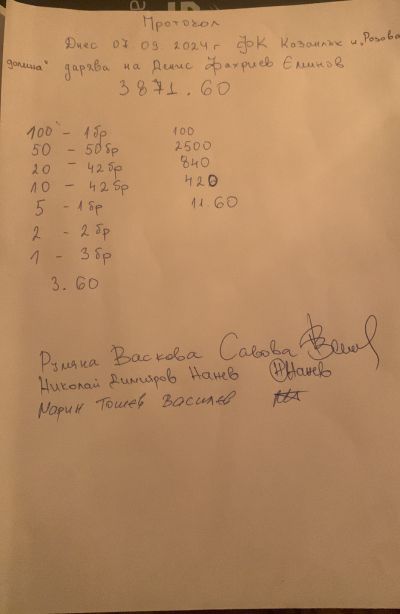 Протокол
Днес 07.09.2024 г ФК Казанлък и "Розова
долина" дарява на Денис Фахриев Еминов
3871.60
100 - 1 бр 100
50 - 50 бр 2500
20 - 42 бр 840
10 - 42 бр 420
5 - 1 бр 11.60
2 - 2 бр
1 - 3 бр
3.60
Румяна Васкова Савова
Николай Димитров Нанев Нанев
Марин Тошев Василев